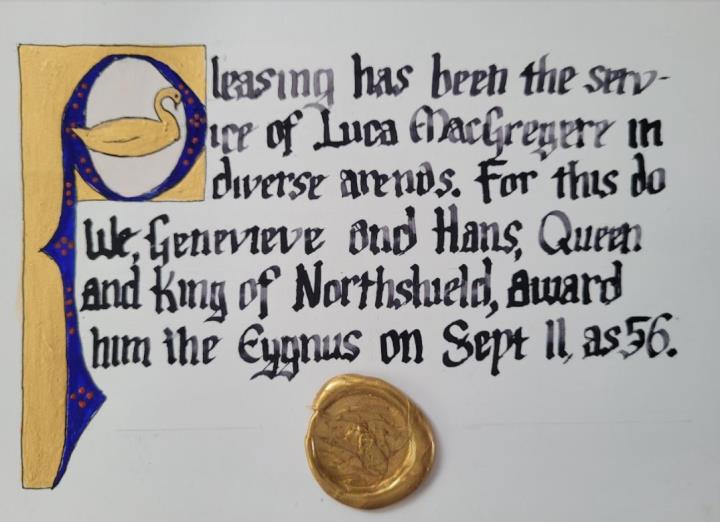 Pleasing has been the serv-
ice of Luca MacGregere in
diverse arenas. For this do
We, Genevieve and Hans, Queen
and King of Northshield, award
him the Cygnus on Sept 11, as 56.